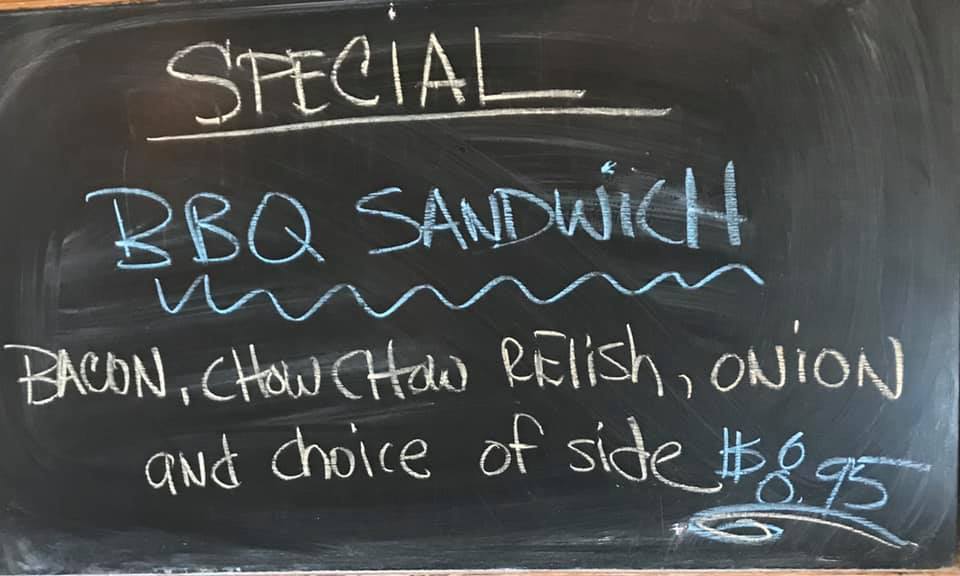 SPECIAL
BBQ SANDWICH
BACON, CHOW CHOW RELISH, ONION
and choice of side $8.95